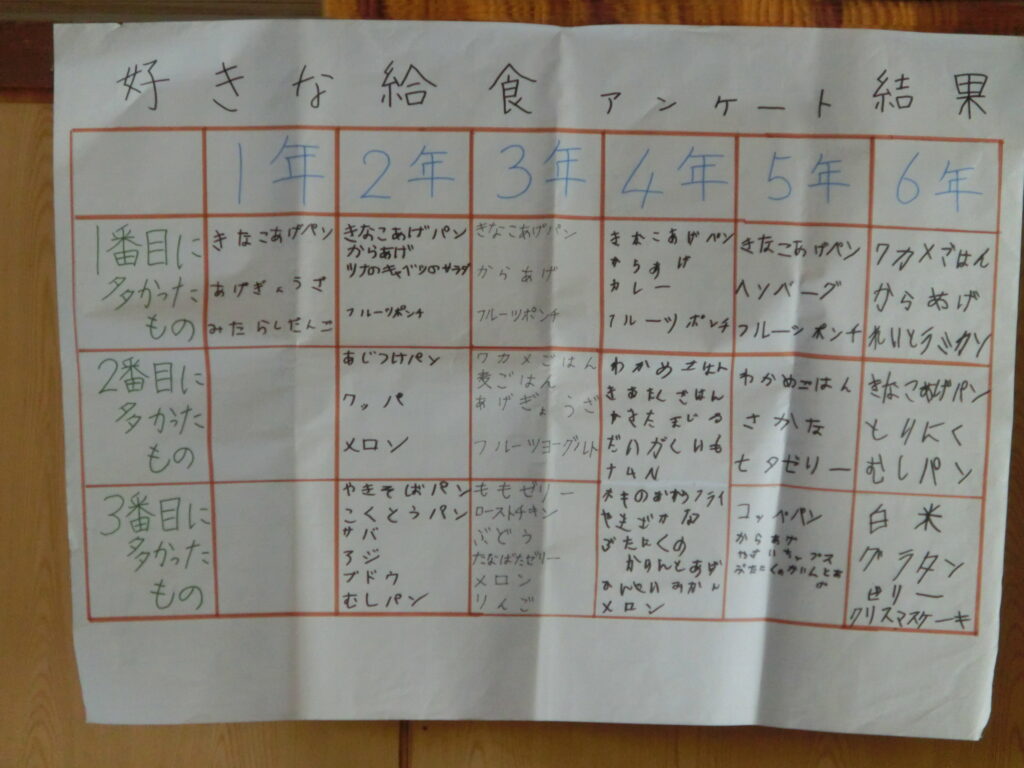 好きな給食アンケート結果
1年 2年 3年 4年 5年 6年
1番目に
多かった
もの
きなこあげパン
あげぎょうざ
みたらしだんご
きなこあげパン
からあげ
ツナのキャベツのサラダ
フルーツポンチ
きなこあげパン
からあげ
フルーツポンチ
きなこあげパン
からあげ
カレー
フルーツポンチ
きなこあげパン
ハンバーグ
フルーツポンチ
ワカメごはん
からあげ
れいとうミカン
2番目に
多かった
もの
あじつけパン
ワッパ
メロン
ワカメごはん
麦ごはん
あげぎょうざ
フルーツヨーグルト
わかめごはん
だいがくいも
ナムル
わかめごはん
さかな
七夕ゼリー
きなこあげパン
とりにく
むしパン
3番目に
多かった
もの
やきそばパン
こくとうパン
サバ
アジ
ブドウ
むしパン
ももゼリー
ローストチキン
ぶどう
たなばたゼリー
メロン
りんご
やきざかな
ぶたにくの
かりんとあげ
メロン
コッペパン
からあげ
やさいチップス
白米
グラタン
ゼリー
クリスマスケーキ